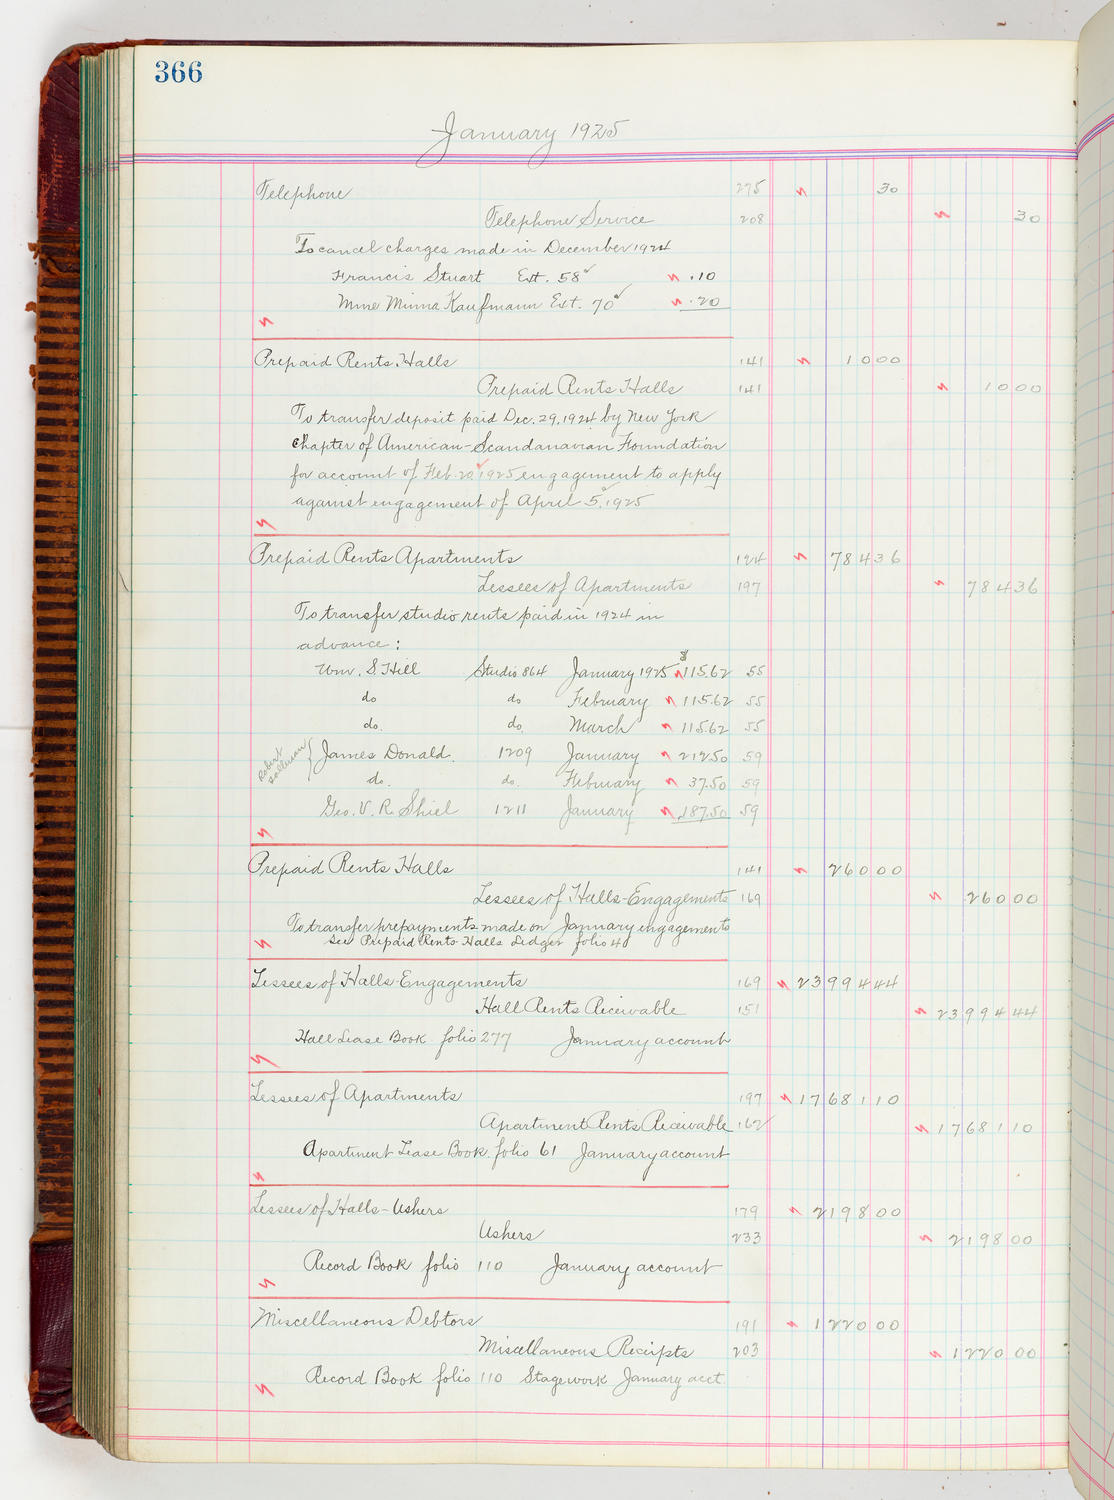 366
January 1925
Telephone 275 30
Telephone Service 208 30
To cancel charges made in December 1924
Francis Stuart Ext. 58 .10
Mme Minna Kaufmann Ext. 70 .20
Prepaid Rents Halls 141 10 00
Prepaid Rents Halls 141 10 00
To transfer deposit paid Dec. 29, 1924 by New York
Chapter of American-Scandanavian Foundation
for account of Feb. 20, 1925 engagement to apply
against engagement of April 5, 1925
Prepaid Rents Apartments 124 784 36
Lessees of Apartments 197 784 36
To transfer studio rents paid in 1924 in
advance:
Wm. S. Hill Studio 864 January 1925 $115.62 55
do do February 115.62 55
do. do. March 115.62 55
Robert Sollman { James Donald. 1209 January 212.50 59
do. do. February 37.50 59
Geo. V. R. Shiel 1211 January 187.50 59
Prepaid Rents Halls 141 260 00
Lessees of Halls-Engagements 169 260 00
To transfer prepayments made on January engagements
see Prepaid Rents Halls Ledger folio 40
Lessees of Halls-Engagements 169 23994 44
Hall Rents Receivable 151 23994 44
Hall Lease Book folio 277 January account
Lessees of Apartments 197 17681 10
Apartment Rents Receivable 162 17681 10
Apartment Lease Book folio 61 January account
Lessees of Halls-Ushers 179 2198 00
Ushers 233 2198 00
Record Book folio 110 January account
Miscellaneous Debtors 191 1220 00
Miscellaneous Receipts 203 1220 00
Record Book folio 110 Stagework January acct